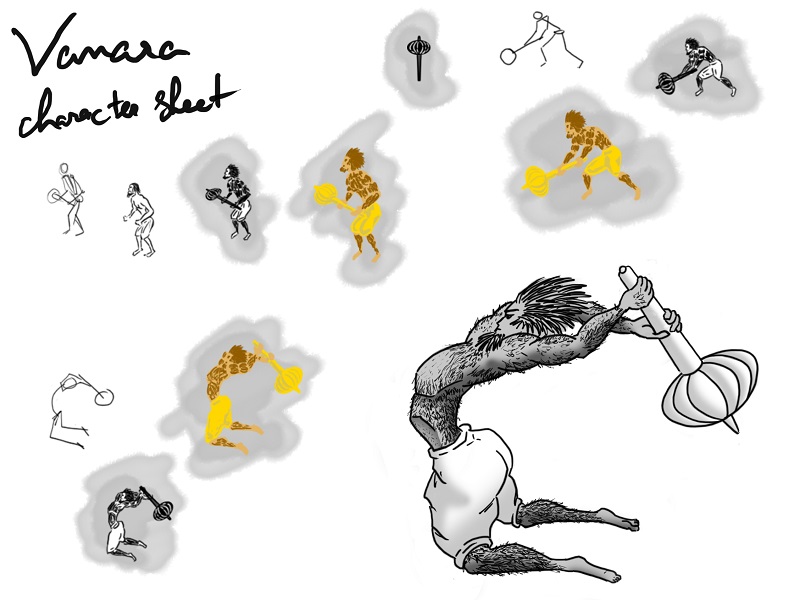 Vanara
character sheet